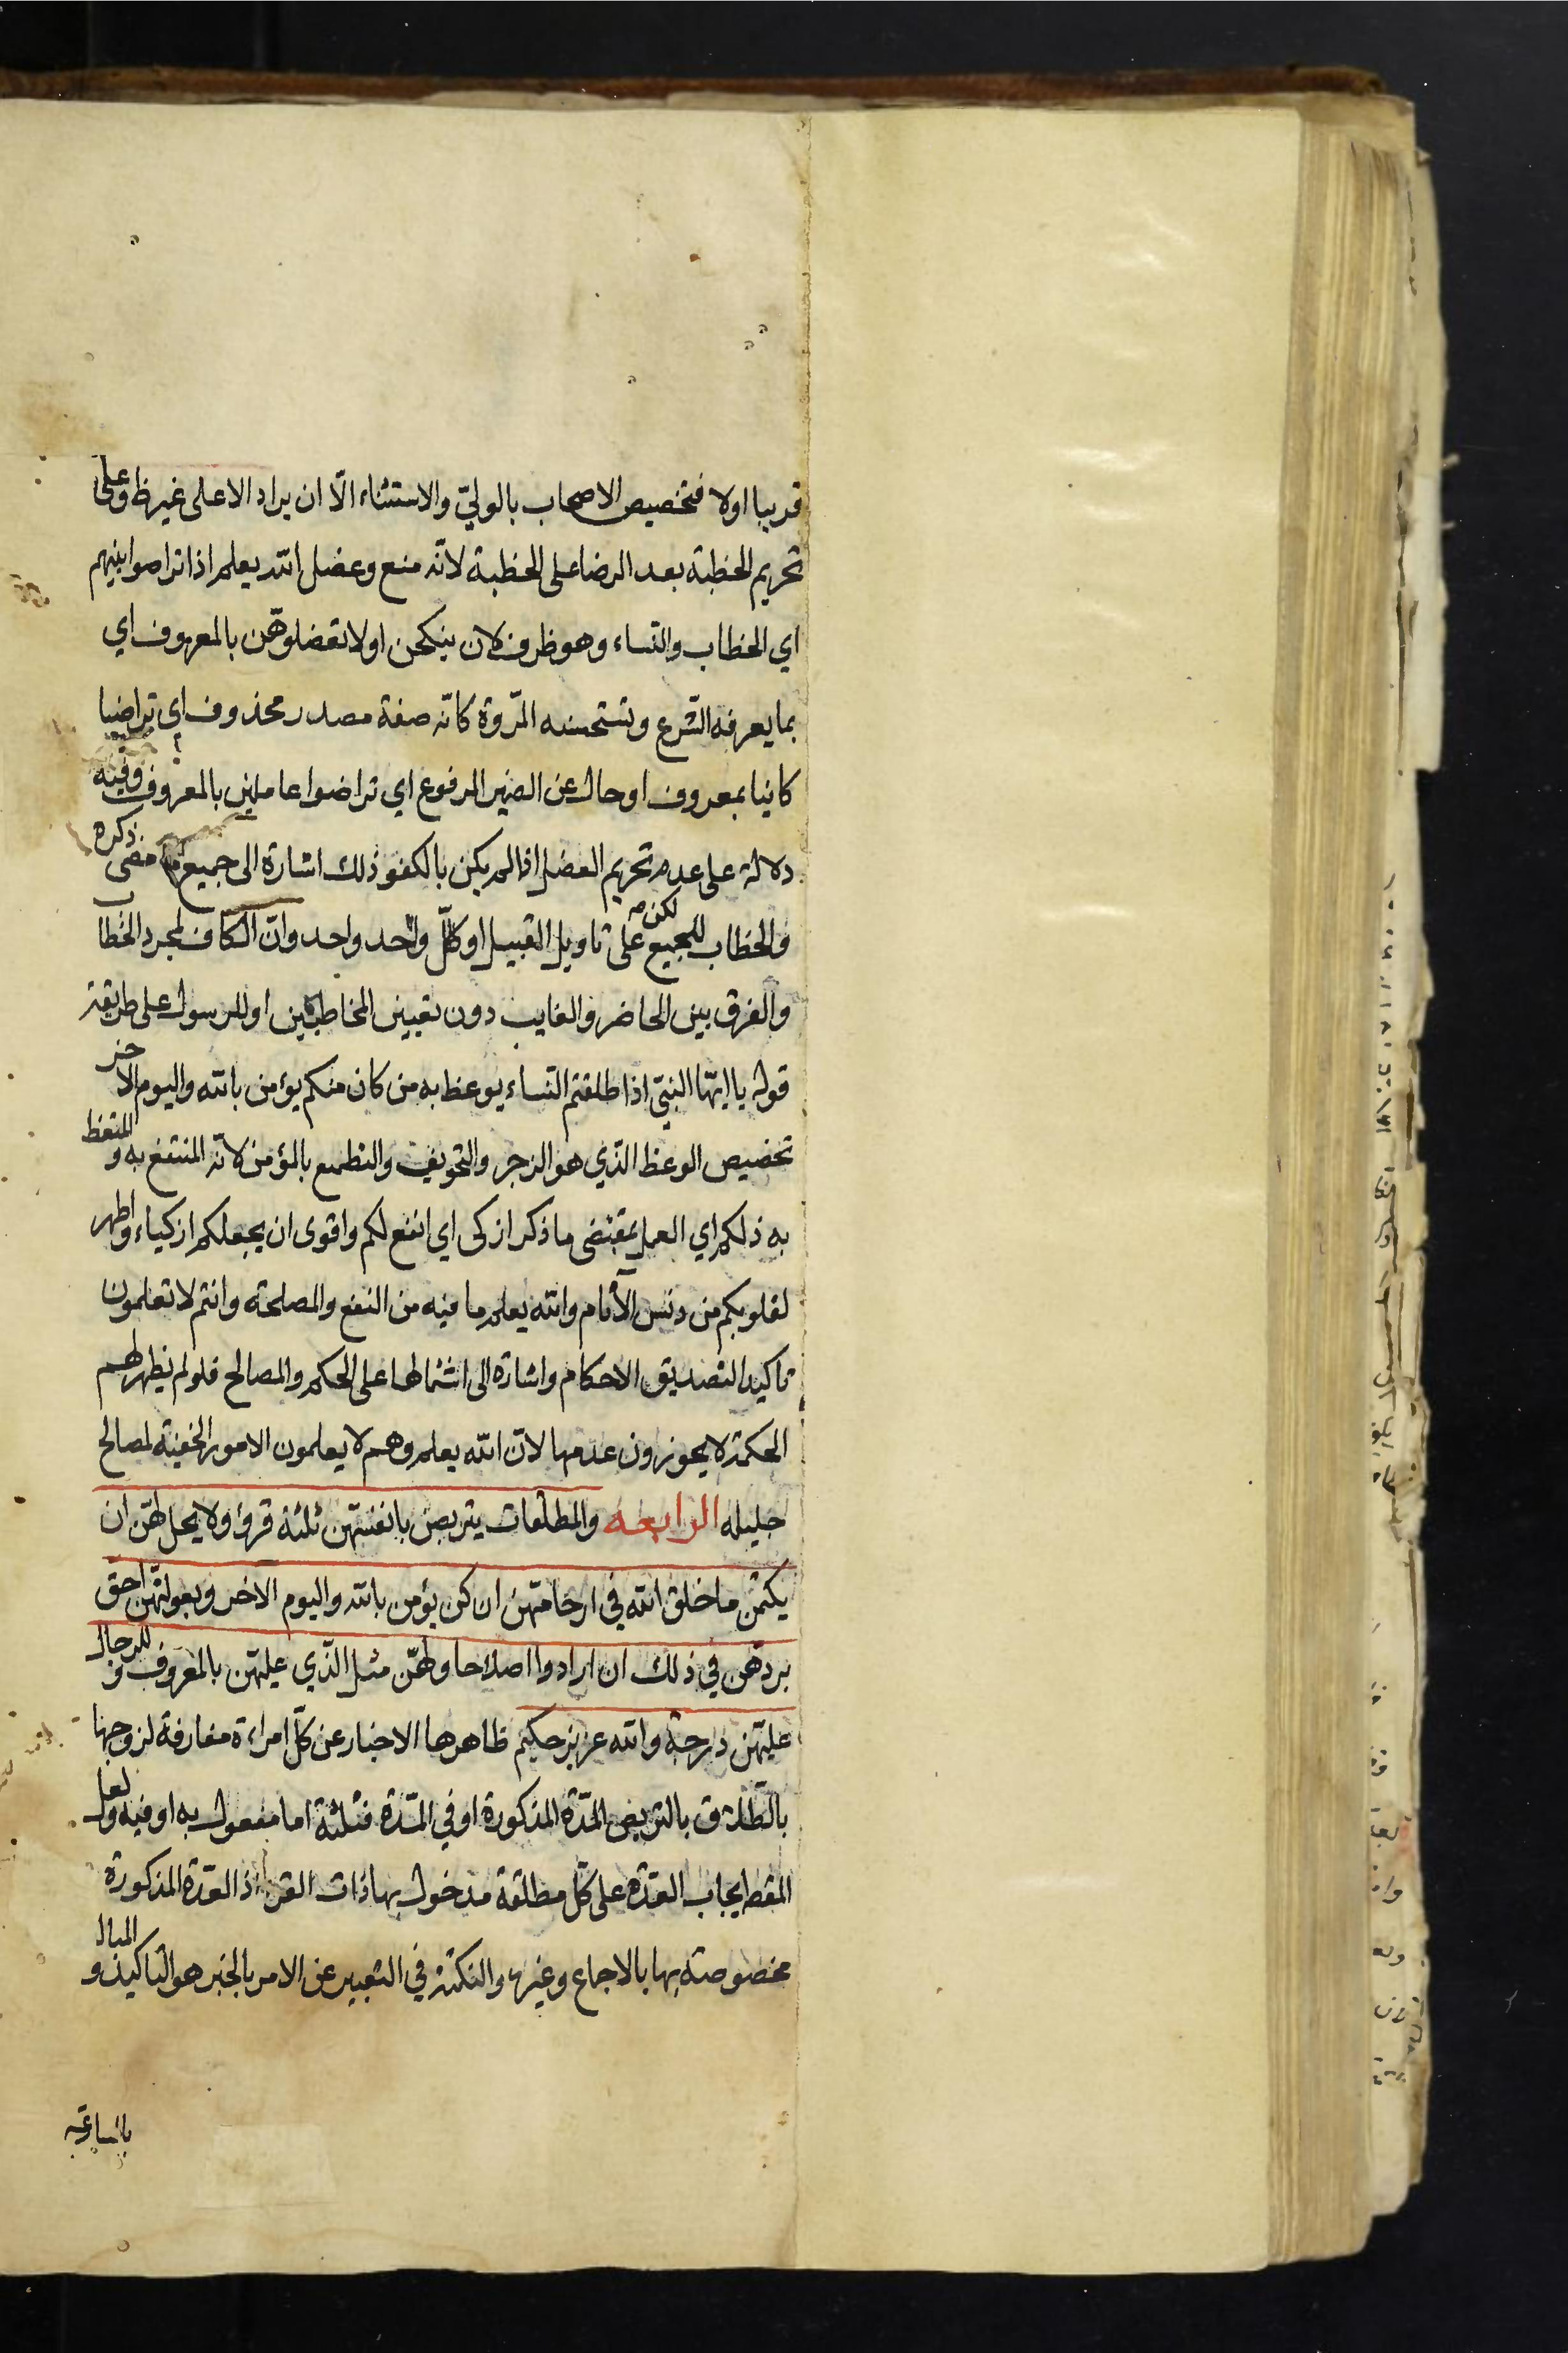 قريبا اولا فتخصيص الاصحاب بالولي والاستثناء الّا ان يراد الاعلى غير ظ وعلى
تحريم الخطبة بعد الرضا على الخطبة لانّه منع وعضل الله يعلم اذا تراضوا بينهم
اي الخطاب والنساء وهو ظرف لان ينكحن او لا تعضلوهّن بالمعروف اي
بما يعرفه الشّرع وتستحسنه المرّوة كانّه صفة مصدر محذوف اي تراضيا
كائنا بمعروف او حال عن الضمير المرفوع اي تراضوا عاملين بالمعروف وفيه
دلالة على عدم تحريم العضل اذا لم يكن بالكفو ذلك اشارة الى جميع ما مضى ذكره
والخطاب للجميع لكن على تاويل القبيل او كلّ واحد واحد وانّ الكاف لمجرد الخطاب
والفرق بين الحاضر والغايب دون تعيين المخاطبين او للرسول على طريقة
قوله يا ايّها النبيّ اذا طلقتم النّساء يوعظ به من كان منكم يؤمن بالله واليوم الاخر
تخصيص الوعظ الّذي هو الزجر والتخويف والتطميع بالمؤمن لانّه المنتفع به والمتعظ
به ذلكم اي العمل بمقتضى ما ذكر ازكى اي انفع لكم واقوى ان يجعلكم ازكياء واطهر
لقلوبكم من دنس الآثام والله يعلم ما فيه من النفع والمصلحة وانتم لا تعلمون
تاكيد لتصديق الاحكام واشارة الى اشتمالها على الحكم والمصالح فلو لم يظهر لهم
الحكمة لا يجوزون عدمها لانّ الله يعلم وهم لا يعلمون الامور الخفيّة لمصالح
جليله الرابعه والمطلّقات يتربصن بانفسهّن ثلثة قروء ولا يحل لهّن ان
يكتمن ما خلق الله في ارحامهّن ان كن يؤمن بالله واليوم الاخر وبعولتهّن احق
بردّهن في ذلك ان ارادوا اصلاحا ولهّن مثل الّذي عليهّن بالمعروف وللرجال
عليهّن درجة والله عزيز حكيم ظاهرها الاخبار عن كلّ امراءة مفارقة لزوجها
بالطّلاق بالتربص المدّة المذكورة او في المدّة فثلثة اما مفعول به او فيه ولعل
المقط ايجاب العدّة على كلّ مطلقة مدخول بها ذات القرء اذ العدّة المذكورة
مخصوصة بها بالاجماع وغيره والنكتة في التعبير عن الامر بالخبر هو التاكيد و المبالـ